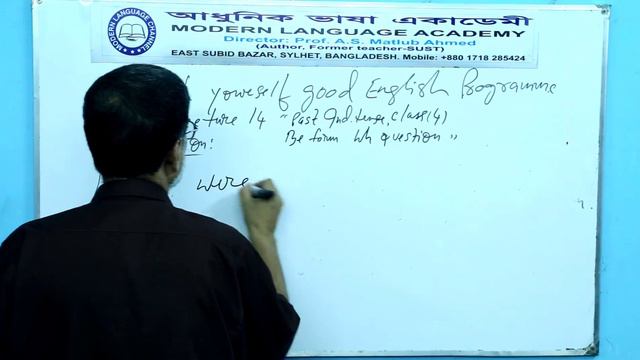 আধুনিক ভাষা একাডেমী
MODERN LANGUAGE ACADEMY
Director: Prof. A.S. Matlub Ahmed
(Author, Former teacher-SUST)
EAST SUBID BAZAR, SYLHET, BANGLADESH. Mobile: +880 1718 285424
MODERN LANGUAGE CHANNEL
youeself good English Programme
ture 14 "Past Ind. tense, Class (4)
on: Be form Wh question"
were